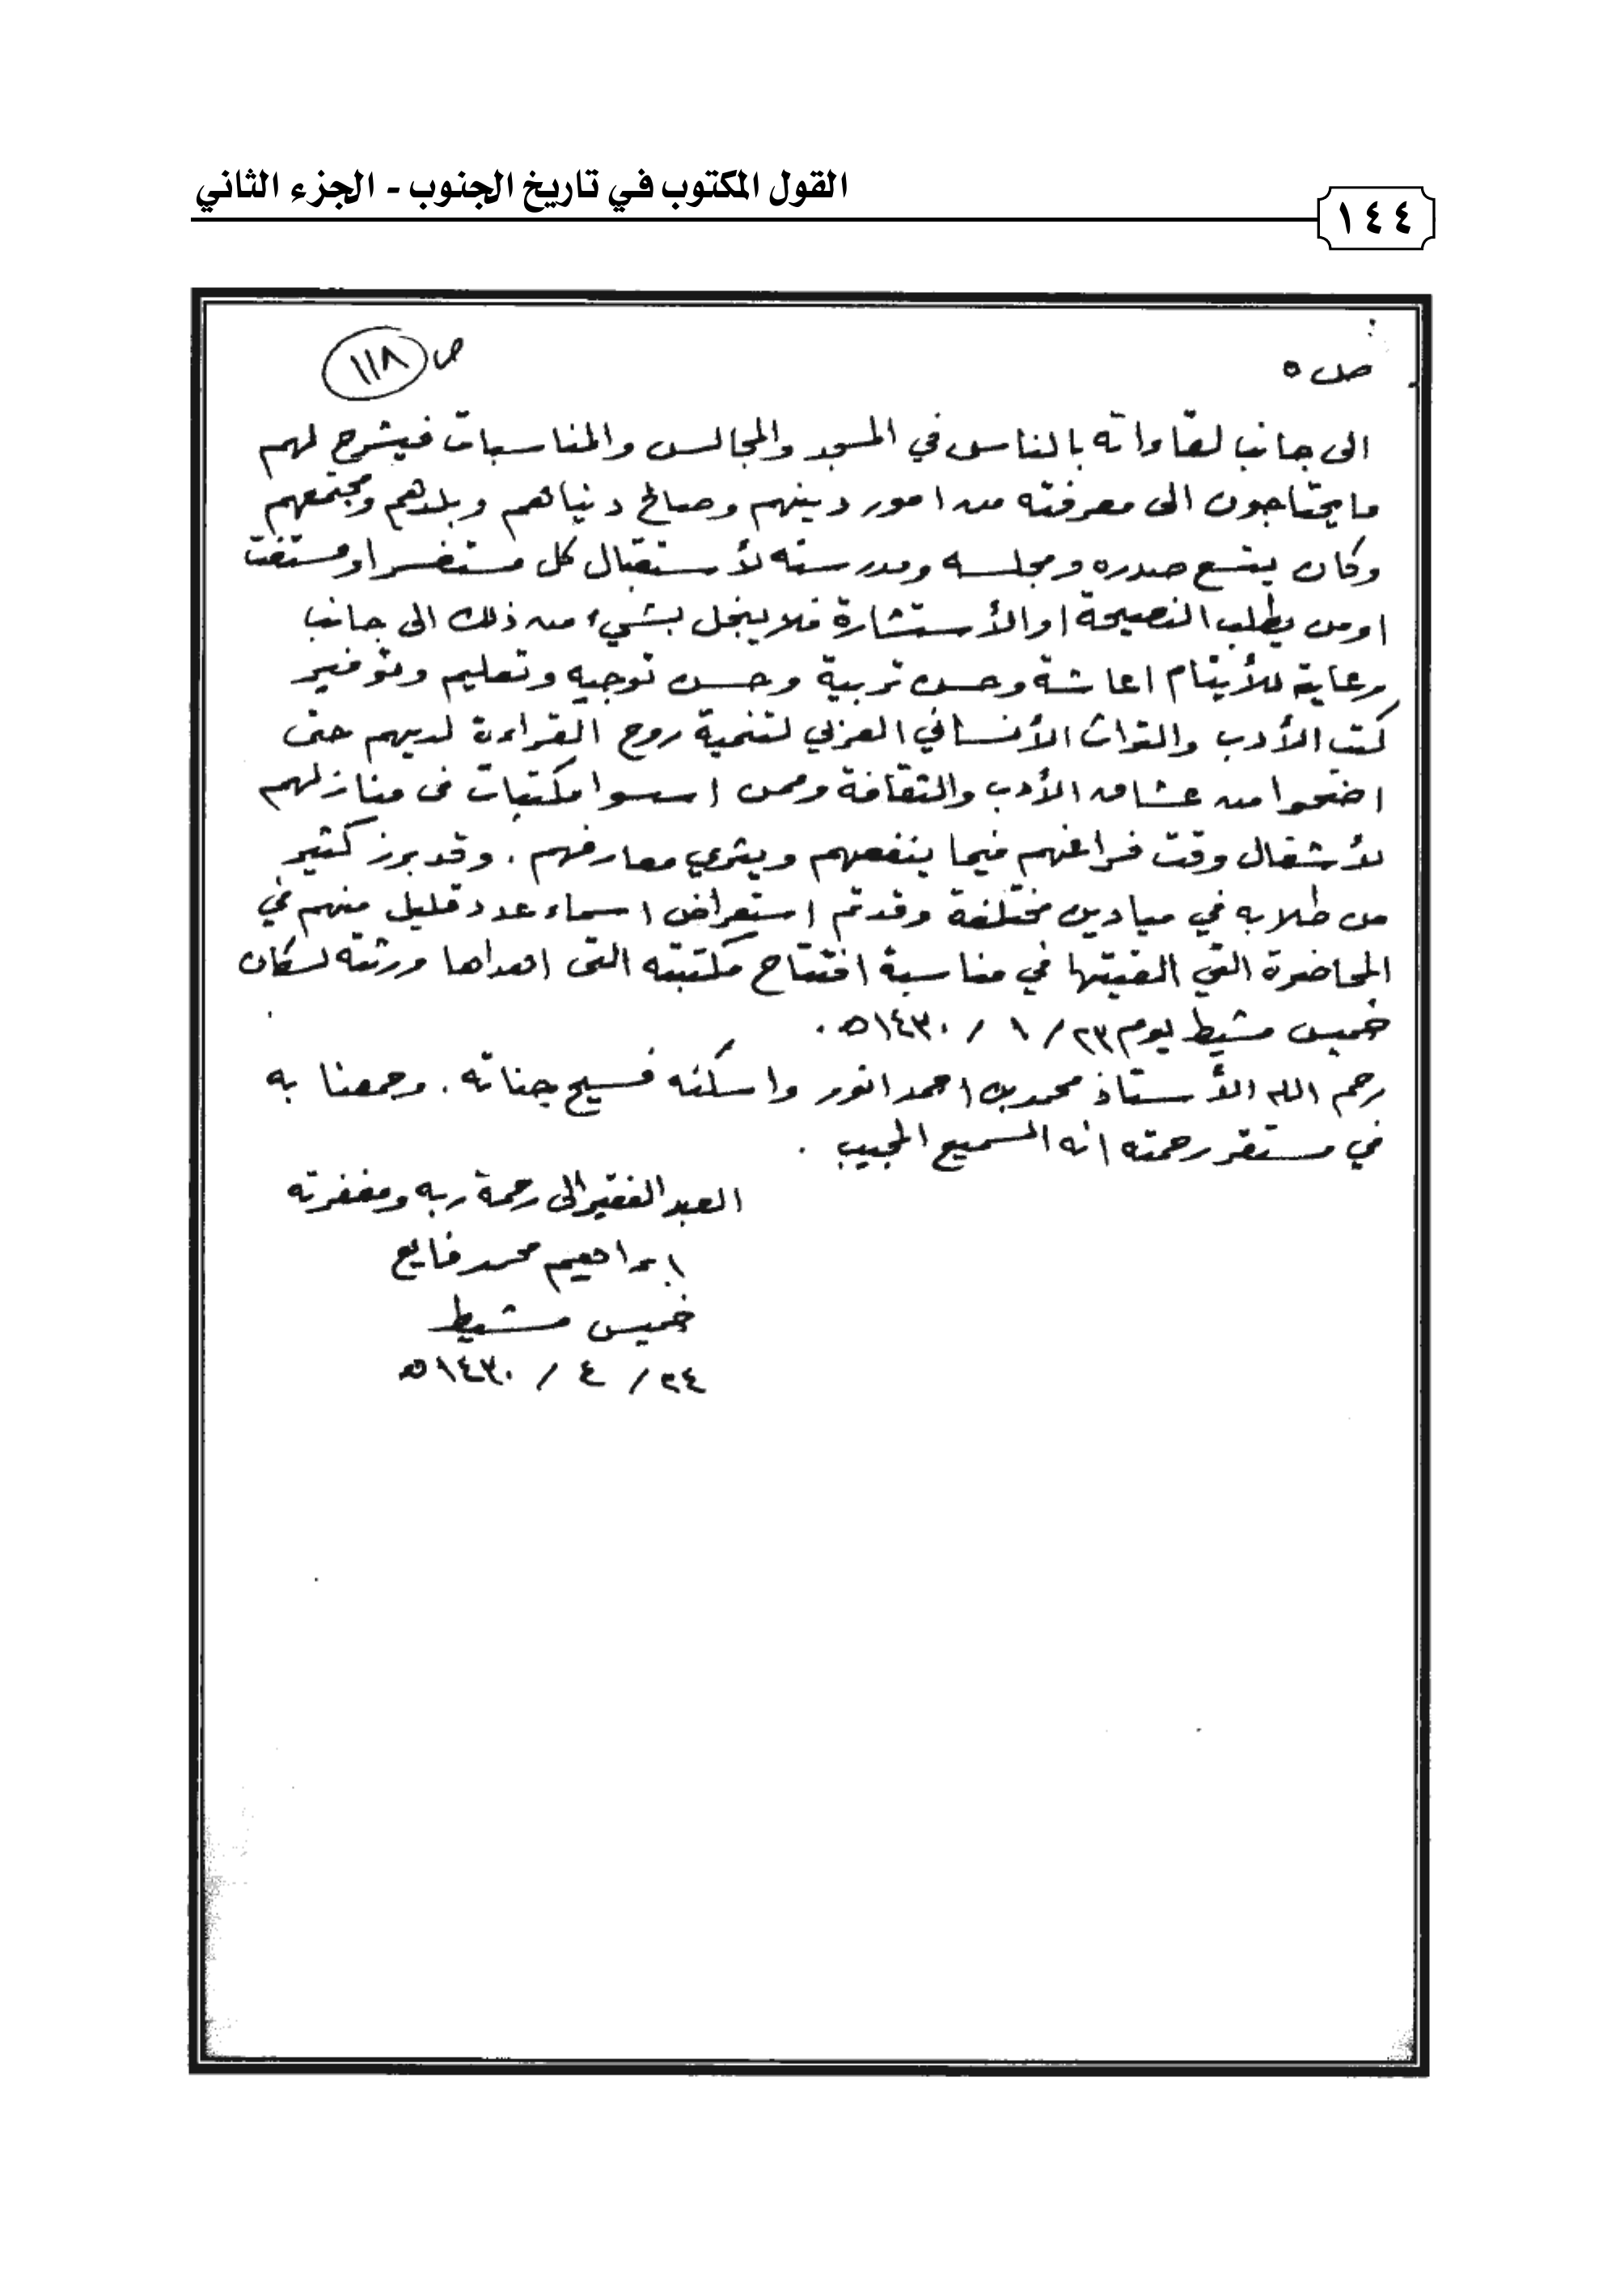 القول المكتوب في تاريخ الجنوب - الجزء الثاني
١٤٤
ص ٥
ص ١١٨
الى جانب لقاواته بالناس في المسجد والمجالس والمناسبات فيشرح لهم
ما يحتاجون الى معرفته من امور دينهم وصالح دنياهم وبلدهم ومجتمعهم
وكان يتسع صدره ومجلسه ومدرسته لأستقبال كل مستفسر او مستفت
او من يطلب النصيحة او الأستشارة فلا يبخل بشيء من ذلك الى جانب
رعاية للأيتام اعاشة وحسن تربية وحسن توجيه وتعليم وتوفير
كتب الأدب والتراث الأنساني العربي لتنمية روح القراءة لديهم حتى
اضحوا من عشاق الأدب والثقافة وممن اسسوا مكتبات في منازلهم
لأشغال وقت فراغهم فيما ينفعهم ويثري معارفهم . وقد برز كثير
من طلابه في ميادين مختلفة وقد تم استعراض اسماء عدد قليل منهم في
المحاضرة التي القيتها في مناسبة افتتاح مكتبته التى اهداها ورثته لسكان
خميس مشيط يوم ٢٣ / ١ / ١٤٣٠ه .
رحم الله الأستاذ محمد بن احمد انور واسكنه فسيح جناته . وجمعنا به
في مستقر رحمته انه السميع المجيب .
العبد الفقير الى رحمة ربه ومغفرته
ابراهيم محمد فايع
خميس مشيط
٢٤ / ٤ / ١٤٣٠ه